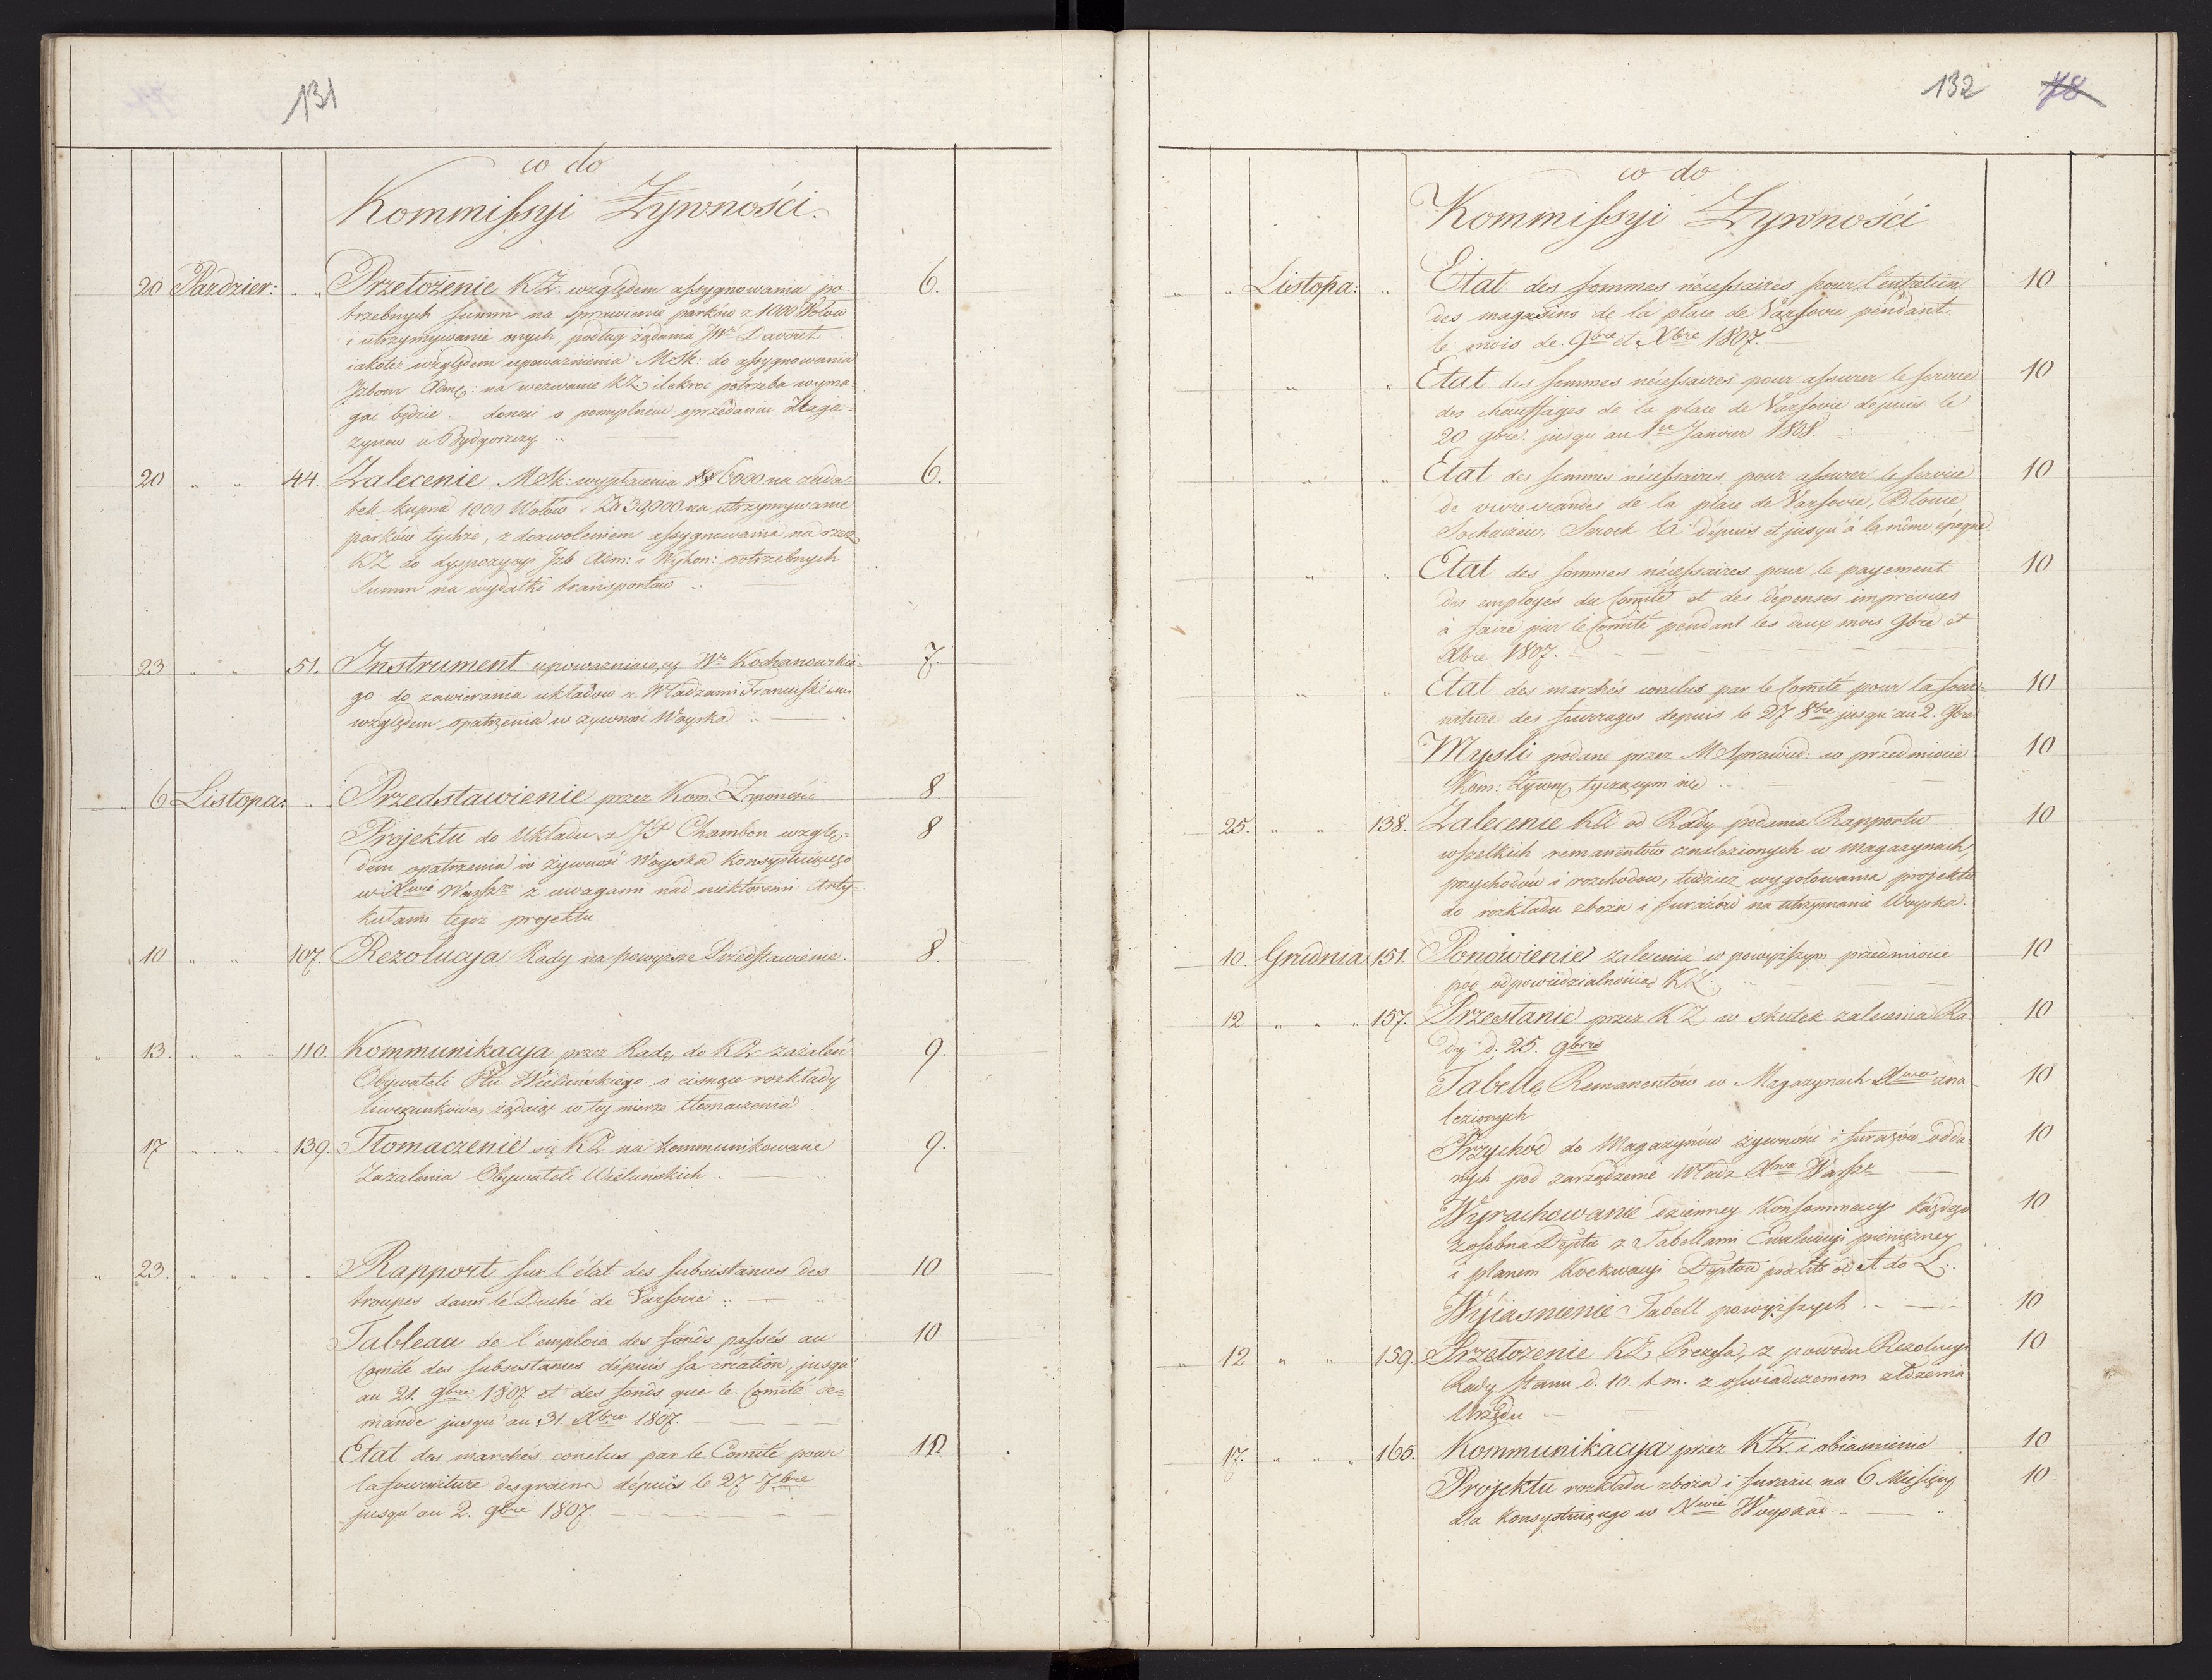 131
co do
Kommissyi Żywności.
20 Pazdzier: " Przełożenie KŻ. względem assygnowania po- 6.
trzebnych summ na sprawienie parków z 1000 Wołow
i utrzymywanie onych podług żądania JW. Davout
iakoteż względem upoważnienia MSk: do assygnowania
Jzbom Adm: na wezwanie KŻ ilekroć potrzeba wyma-
gać będzie. donosi o pomyślnem sprzedaniu Maga-
zynow w Bydgoszczy "
20 " " 44. Zalecenie MSk: wypłacenia 6000 na zada- 6.
tek kupna 1000 Wołów i Zł 34,000 na utrzymywanie
parków tychże, z dozwoleniem assygnowania na rzecz
KŻ do dyspozycyi Jzb Adm: i Wykon: potrzebnych
summ na wydatki transportow
23 " " 51. Instrument upoważniaiący Wo Kochanowskie- 7.
go do zawierania układow z Władzami Francuskiemi
względem opatrzenia w żywność Woyska "
6 Listopa: " Przedstawienie przez Kom. Żywności 8.
Projektu do Układu z JP Chambon wzglę- 8
dem opatrzenia w żywność Woyska konsystuiącego
w Xwie Warsz. z uwagami nad niektóremi Arty-
kułami tegoż projektu
10 " " 107. Rezolucyja Rady na powyższe Przedstawienie. 8.
" 13. " " 110. Kommunikacyja przez Radę do KŻ. zażaleń 9.
Obywateli Ptu Wieluńskiego o cisnące rozkłady
liwerunkowe, żądaiąc w tey mierze tłomaczenia
17 " " 139. Tłomaczenie się KŻ na kommunikowane 9.
Zażalenia Obywateli Wieluńskich "
" 23. " " " Rapport sur l'état des subsistances des 10
troupes dans le Duché de Varsovie "
Tableau de l'emploie des fonds passés au 10
Comité des subsistances dépuis sa création, jusqu'
au 21. 9bre 1807 et des fonds que le Comité de-
mande jusqu'au 31. Xbre 1807.
Etat des marchés conclus par le Comité pour 10
la fourniture des grains dépuis le 27 7bre
jusqu'au 2. 9bre 1807.
132 78
co do
Kommissyi Żywności
" " Listopa: " Etat des sommes nécessaires pour l'entretien 10
des magasins de la place de Varsovie pendant
le mois de 9bre et Xbre 1807.
" " Etat des sommes nécessaires pour assurer le service 10
des chauffages de la place de Varsovie dépuis le
20 9bre. jusqu'au 1er Janvier 1808.
" " Etat des sommes nécessaires pour assurer le service 10
de vivre viandes de la place de Varsovie, Błonie
Sochaczew, Serock &c: dépuis et jusqu'à la même époque
" " Etat des sommes nécessaires pour le payement 10
des employés du Comité et des dépenses imprévues
à faire par le Comité pendant les deux mois 9bre et
Xbre 1807.
" " Etat des marchés conclus par le Comité pour la four- 10
niture des fourrages depuis le 27 8bre jusqu'au 2. 9bre
Myśli podane przez MSprawied: w przedmiocie 10
Kom: Żywn: tyczącym się "
25. " " 138. Zalecenie KŻ od Rady podania Rapportu 10
wszelkich remanentów znalezionych w magazynach,
przychodów i rozchodow, tudzież wygotowania projektu
do rozkładu zboża i furażów na utrzymanie Woyska.
10. Grudnia 151. Ponowienie zalecenia w powyższym przedmiocie 10
pod odpowiedzialnością KŻ.
12 " " 157. Przesłanie przez KŻ w skutek zalecenia Ra- 10
dy d. 25. 9bris
Tabelle Remanentów w Magazynach Xwa zna- 10
lezionych
Przychód do Magazynów żywności i furażów odda- 10
nych pod zarządzenie Władz Xwa Warsz
Wyrachowanie dzienney konsommacyi każdego 10
z osobna Deptu z Tabellami Ewaluacyi pienięzney
i planem Koekwacyi Deptow pod Litt od A do L.
Wyiaśnienie Tabell powyższych. 10
" 12 " " 159. Przełożenie KŻ, Prezesa, z powodu Rezolucyi 10
Rady Stanu d. 10. t.m. z oświadczeniem złożenia
Urzędu
17. " " 165. Kommunikacyja przez KŻ. i obiasnienie 10
Projektu rozkładu zboża i furażu na 6 Miesięcy 10.
dla konsystuiącego w Xwie Woyska "